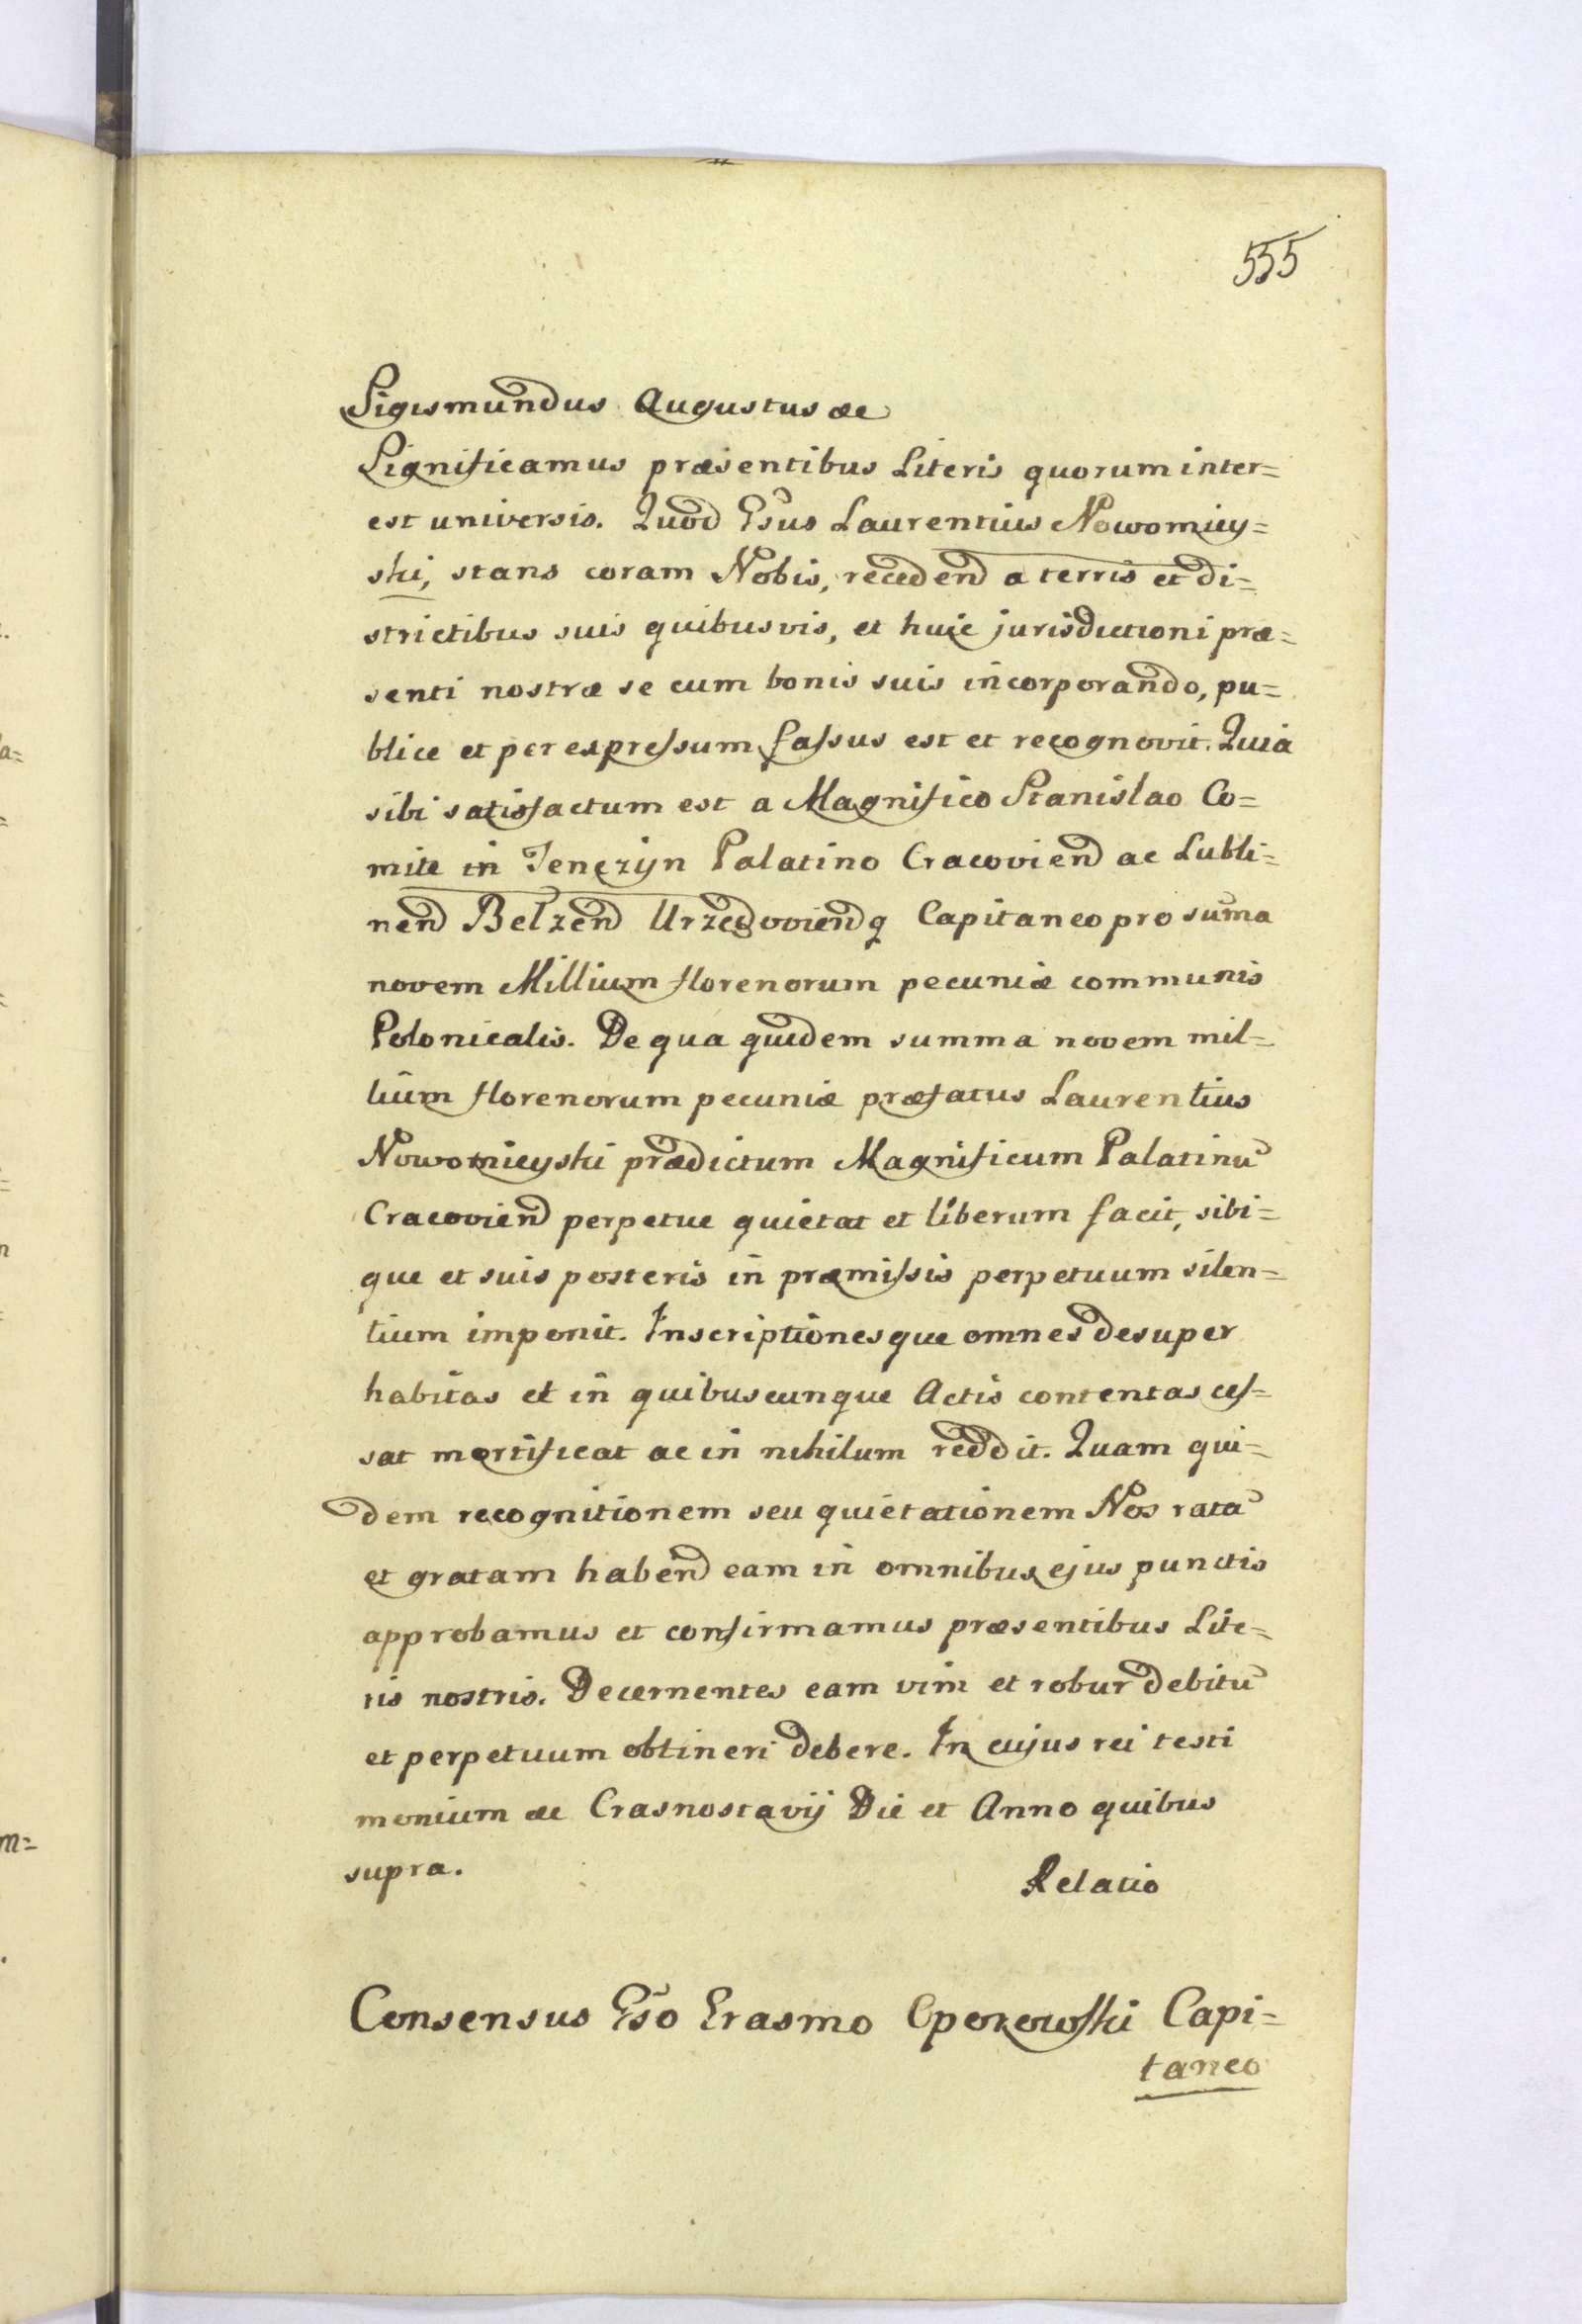 555
Sigismundus Augustus æe
Significamus præsentibus Literis quorum inter=
est universis. Quod Gs̃us Laurentius Nowomiey=
ski, stans coram Nobis, recedeñd a terris et di=
strictibus suis quibusvis, et huic jurisdictioni præ=
senti nostræ se cum bonis suis incorporando, pu=
blice et per expreſsum faſsus est et recognovit. Quia
sibi satisfactum est a Magnifico Stanislao Co=
mite in Tenczyn Palatino Cracovieñd ac Lubli=
neñd Belzeñd Urzedovieñdq Capitaneo pro sum̃a
novem Millium florenorum pecuniæ communis
Polonicalis. De qua quidem summa novem mil=
lium florenorum pecuniæ præfatus Laurentius
Nowomieyski prædictum Magnificum Palatinũ
Cracovieñd perpetue quietat et liberum facit, sibi=
que et suis posteris in præmiſsis perpetuum silen=
tium imponit. Inscriptionesque omnes desuper
habitas et in quibuscunque Actis contentas ceſ=
sat mortificat ac in nihilum reddit. Quam qui=
dem recognitionem seu quietationem Nos ratã
et gratam habeñd eam in omnibus ejus punctis
approbamus et confirmamus præsentibus Lite=
ris nostris. Decernentes eam vim et robur debitũ
et perpetuum obtineri debere. In cujus rei testi
monium æe Crasnostavij Die et Anno quibus
supra.
Relatio
Consensus Gs̃o Erasmo Oporowſki Capi=
taneo